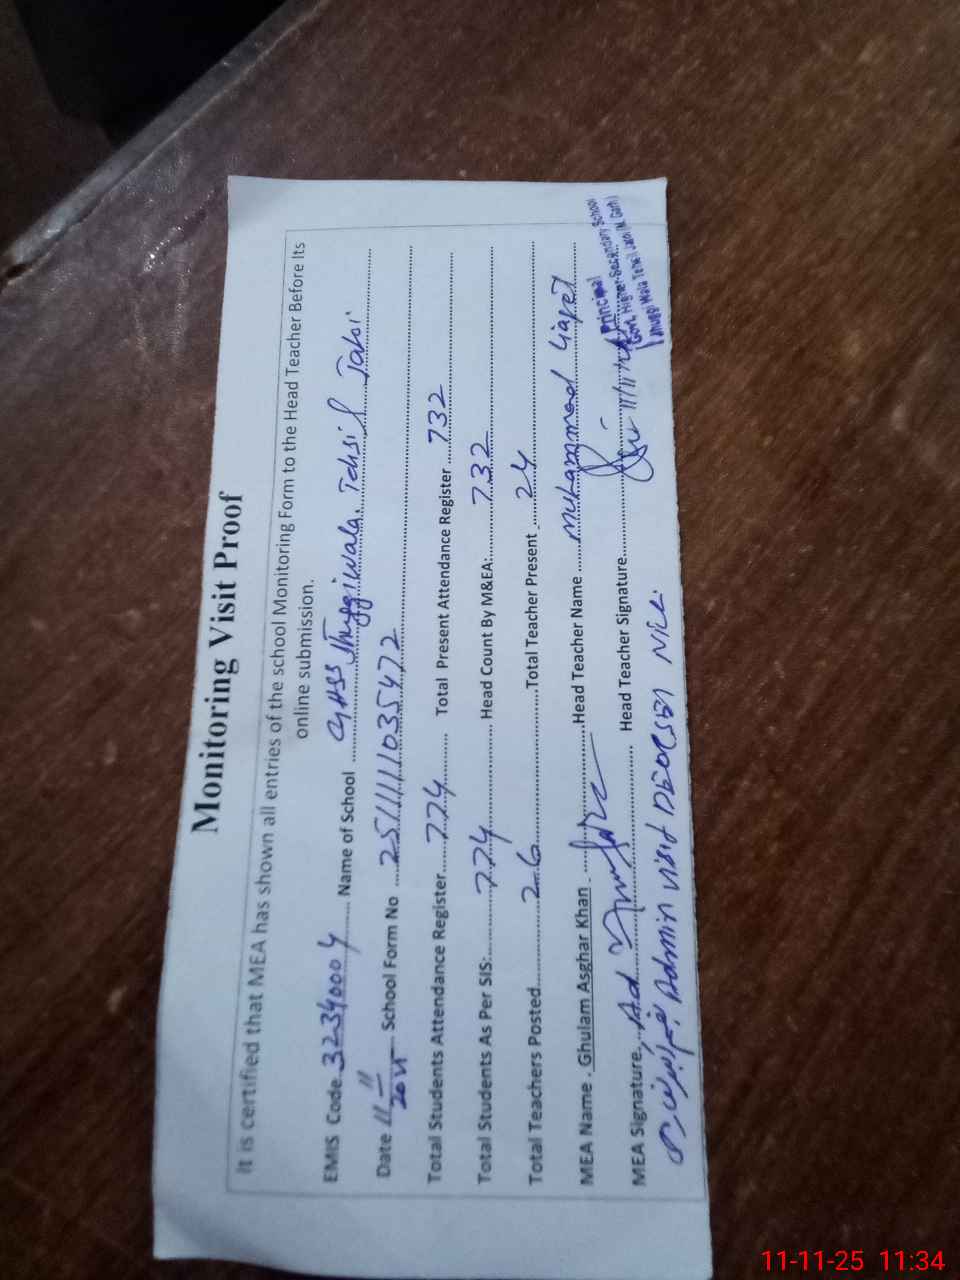 Monitoring Visit Proof
It is certified that MEA has shown all entries of the school Monitoring Form to the Head Teacher Before Its
online submission.
EMIS Code 32340004 Name of School GHSS Jhuggiwala. Tehsil Jatoi
Date 11-11 2025 School Form No 251111035472
Total Students Attendance Register 774 Total Present Attendance Register 732
Total Students As Per SIS: 774 Head Count By M&EA: 732
Total Teachers Posted 26 Total Teacher Present 24
MEA Name . Ghulam Asghar Khan Head Teacher Name Muhammad Liaqet
MEA Signature. Head Teacher Signature
Principal
Govt. Higher Secondary School
Jhuggi Wala Tehsil Jatoi (M. Garh)
Admin visit Nill.
11-11-25 11:34